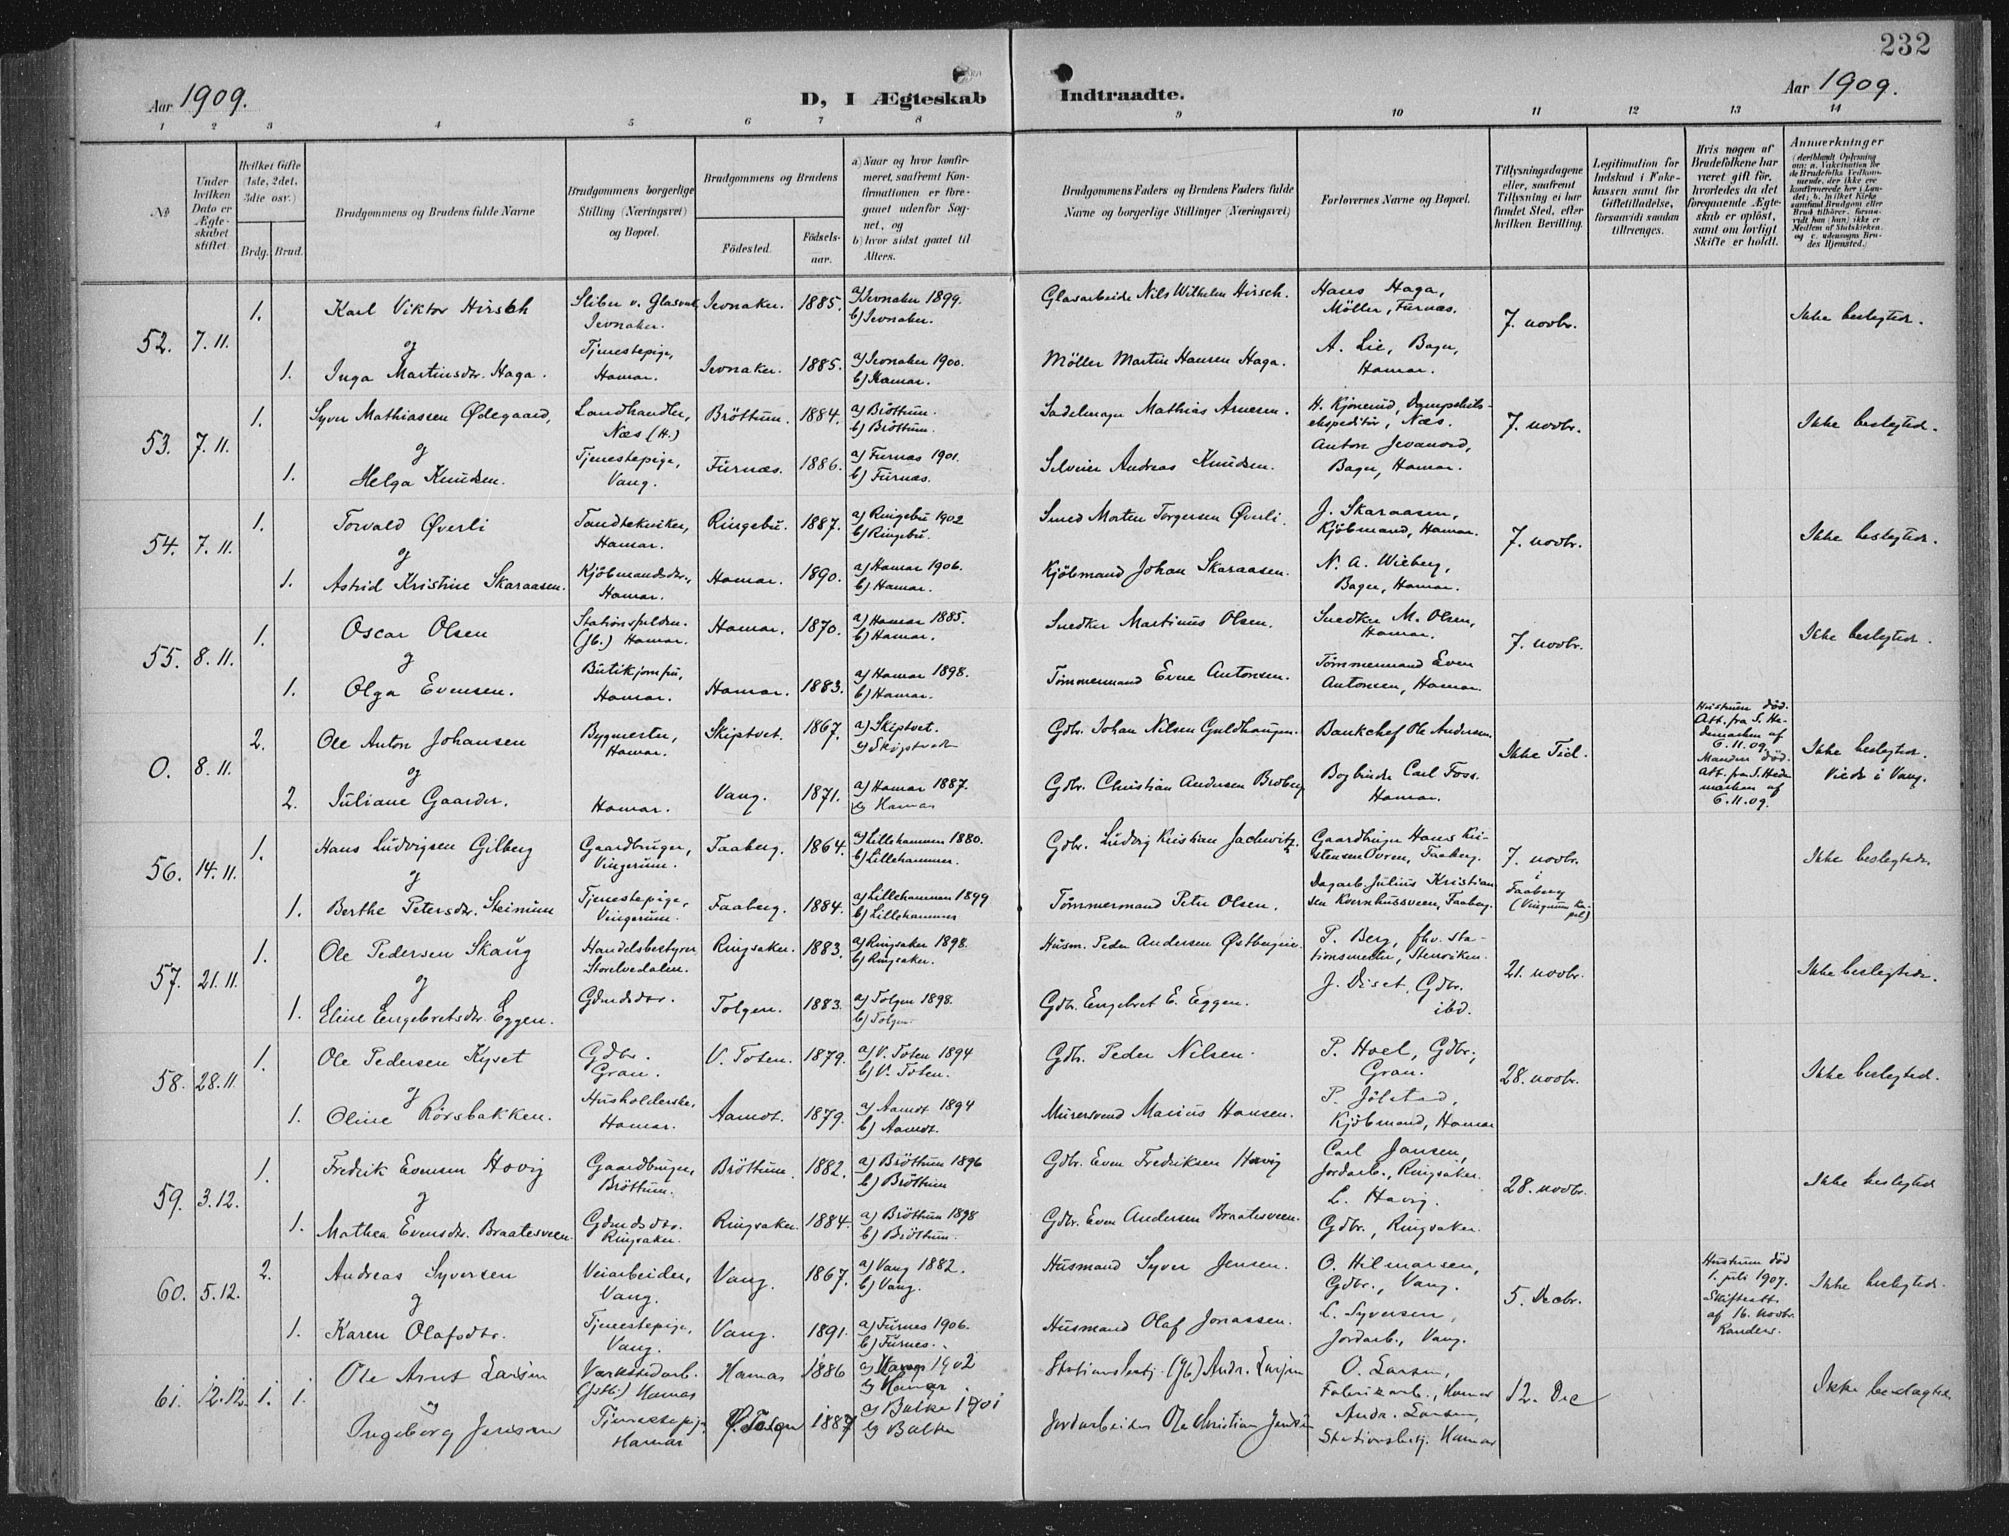 232
Aar 1909.
D, I Ægteskab Indtraadte.
Aar 1909.
1 2 3 4 5 6 7 8 9 10 11 12 13 14
№
Under hvilken Dato er Ægteskabet stiftet
Hvilket Gifte (1ste, 2det, 3die osv.)
Brdg. Brud.
Brudgommens og Brudens fulde Navne
Brudgommens borgerlige Stilling (Næringsvei) og Bopæl.
Brudgommens og Brudens
Födested. Födselsaar.
a) Naar og hvor konfirmeret, saafremt Konfirmationen er foregaaet udenfor Sognet, og
b) hvor sidst gaaet til Alters.
Brudgommens Faders og Brudens Faders fulde Navne og borgerlige Stillinger (Næringsvei)
Forlovernes Navne og Bopæl.
Tillysningsdagene eller, saafremt Tillysning ei har fundet Sted, efter hvilken Bevilling.
Legitimation for Indskud i Enkekassen samt for Giftetilladelse, forsaavidt saadan tiltrænges.
Hvis nogen af Brudefolkene har været gift för, hvorledes da det foregaaende Ægteskab er oplöst, samt om lovligt Skifte er holdt.
Anmærkninger
52. 7.11. 1. Karl Viktor Hirsch Sliber v. Glasværk, Jevnaker. Jevnaker. 1885. a) Jevnaker 1899. b) Jevnaker. Glasarbeide Nils Wilhelm Hirsch. Hans Haga, Möller, Furnæs. 7. novbr. Ikke beslegtede.
og
1. Inga Martinsdr. Haga. Tjenestepige, Hamar. Jevnaker. 1885. a) Jevnaker 1900. b) Hamar. Møller Martin Hansen Haga. A. Lie, Bager, Hamar.
53. 7.11. 1. Syver Mathiassen Ødegaard, Landhandler, Næs (H.) Bröttum. 1884. a) Bröttum. b) Bröttum. Sadelmager Mathias Arnesen. H. Kjonerud, Dampskibsekspeditör, Næs. 7. novbr. Ikke beslegtede.
og
1. Helga Knudsen. Tjenestepige, Vang. Furnæs. 1886. a) Furnæs 1901. b) Furnæs. Selveier Andreas Knudsen. Anton Jevanord, Bager, Hamar.
54. 7.11. 1. Torvald Øverli Tandtekniker, Hamar. Ringebu. 1887. a) Ringebu 1902 b) Ringebu. Smed Morten Torgersen Øverli. J. Skaraasen, Kjöbmand, Hamar. 7. novbr. Ikke beslegtede.
og
1. Astrid Kristine Skaraasen. Kjöbmandsdtr., Hamar. Hamar. 1890. a) Hamar 1906. b) Hamar. Kjöbmand Johan Skaraasen. N. A. Wieberg, Bager, Hamar.
55. 8.11. 1. Oscar Olsen Stationsfuldm. (Jb.) Hamar. Hamar. 1870. a) Hamar 1885. b) Hamar. Snedker Martinus Olsen. Snedker M. Olsen, Hamar. 7. novbr. Ikke beslegtede.
og
1. Olga Evensen. Butikjomfru, Hamar. Hamar. 1883. a) Hamar 1898. b) Hamar. Tømmermand Even Antonsen. Tømmermand Even Antonsen, Hamar.
0. 8.11. 2. Ole Anton Johansen Bygmester, Hamar. Skiptvet. 1867. a) Skiptvet. b) Skiptvedt Gdbr. Johan Nilsen Guldhaugen. Bankchef Ole Andersen. Ikke Tid. Hustruen död. Att. fra S. Hedemarken af 6.11.09. Ikke beslegtede. Viede i Vang.
og
2. Juliane Gaarder. Hamar. Vang. 1871. a) Hamar 1887. b) Hamar Gdbr. Christian Andersen Broberg Bogbinder Carl Foss. Hamar. Manden död. Att. fra S. Hedemarken af 6.11.09.
56. 14.11. 1. Hans Ludvigsen Gilberg Gaardbruger, Vingerum. Faaberg. 1864. a) Lillehammer 1880. b) Lillehammer. Gdbr. Ludvig Kristian Jachwitz. Gaardbruger Hans Kristensen Ovren, Faaberg. 7. novbr. i Faaberg (Vingrum Kapel) Ikke beslegtede.
og
1. Berthe Petersdtr. Steinum Tjenestepige, Vingerum. Faaberg. 1884. a) Lillehammer 1899 b) Lillehammer Tømmermand Peter Olsen. Dagarb. Julius Kristiansen Kvernhusveen, Faaberg.
57. 21.11. 1. Ole Pedersen Skaug Handelsbestyrer, Storelvedalen. Ringsaker. 1883. a) Ringsaker 1898. b) Ringsaker. Husm. Peder Andersen Østbyeie. P. Berg, fhv. Stationsmester, Stenviken. 21. novbr. Ikke beslegtede.
og
1. Eline Engebretsdtr. Eggen. Gdmdsdtr. Tolgen. 1883. a) Tolgen 1898. b) Tolgen. Gdbr. Engebret E. Eggen. J. Diset, Gdbr. ibd.
58. 28.11. 1. Ole Pedersen Kyset Gdbr. Gran. V. Toten. 1879. a) V. Toten 1894 b) V. Toten. Gdbr. Peder Nilsen. P. Hoel, Gdbr., Gran. 28. novbr. Ikke beslegtede.
og
1. Oline Rörsbakken. Husholderske, Hamar. Aamot. 1879. a) Aamot 1894 b) Aamot. Murersvend Marius Hansen. P. Jölstad, Kjöbmand, Hamar
59. 3.12. 1. Fredrik Evensen Hovig Gaardbruger, Bröttum. Bröttum. 1882. a) Bröttum 1896 b) Bröttum Gdbr. Even Fredriksen Hovig Carl Jansen, Jordarb., Ringsaker. 28. novbr. Ikke beslegtede
og
1. Mathea Evensdtr. Braatesveen. Gdmdsdtr. Ringsaker. Ringsaker. 1884. a) Bröttum 1898 b) Bröttum. Gdbr. Even Andersen Braatesveen. L. Havig. Gdbr., Ringsaker.
60. 5.12. 2. Andreas Syversen Veiarbeider, Vang. Vang. 1867. a) Vang 1882. b) Vang. Husmand Syver Jensen. O. Hilmarsen, Gdbr., Vang. 5. Decbr. Hustruen död 1. juli 1907. Skifteatt. af 16. novbr. Ikke beslegtede.
og
1. Karen Olafsdtr. Tjenestepige, Vang. Vang. 1891. a) Furnes 1906. b) Furnes. Husmand Olaf Jonassen. L. Syversen, Jordarb., Vang.
61. 12.12. 1. 1. Ole Arnt Larsen Værkstedarb. (Jstb.) Hamar Hamar 1886 a) Hamar 1902 b) Hamar Stationsbetj. (Jb.) Andr. Larsen O. Larsen, Fabrikarb., Hamar 12. Dec Ikke beslægtede
og
Ingeborg Jensen Tjenestepige, Hamar 1887 a) Balke 1901 b) Balke Jordarbeider Ole Christian Jensen Andr. Larsen, Stationsbetj. Hamar